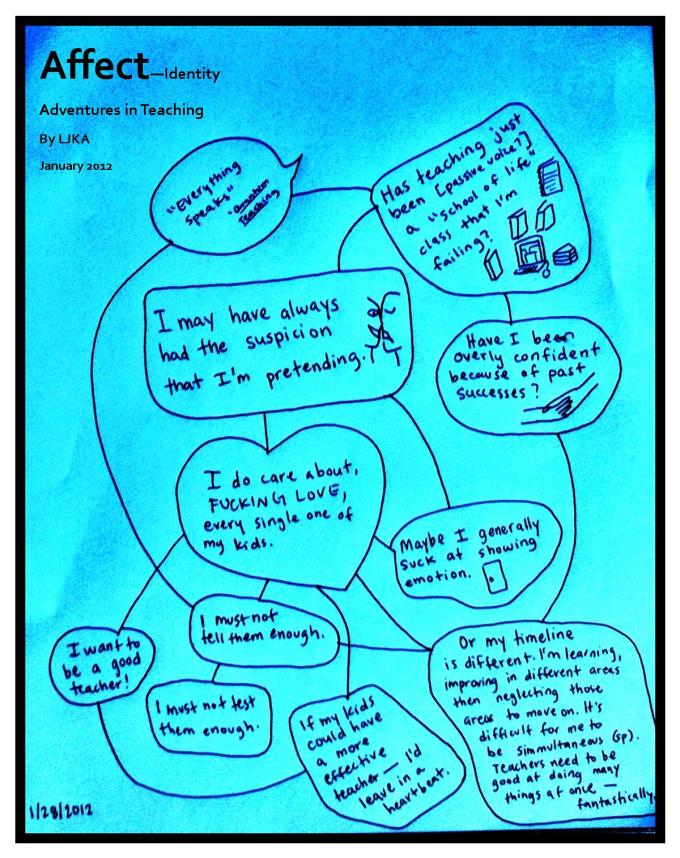 Affect—Identity
Adventures in Teaching
By LJKA
January 2012
"Everything
speaks"
-Quantum
Teaching
Has teaching just
been [passive voice?]
a "school of life"
class that I'm
failing?
I may have always
had the suspicion
that I'm pretending.
Have I been
overly confident
because of past
successes?
I do care about,
FUCKING LOVE,
every single one of
my kids.
Maybe I generally
suck at showing
emotion.
I must not
tell them enough.
I want to
be a good
teacher!
I must not test
them enough.
If my kids
could have
a more
effective
teacher — I'd
leave in a
heartbeat.
Or my timeline
is different. I'm learning,
improving in different areas
then neglecting those
areas to move on. It's
difficult for me to
be simmultaneous (sp).
Teachers need to be
good at doing many
things at once —
fantastically.
1/28/2012